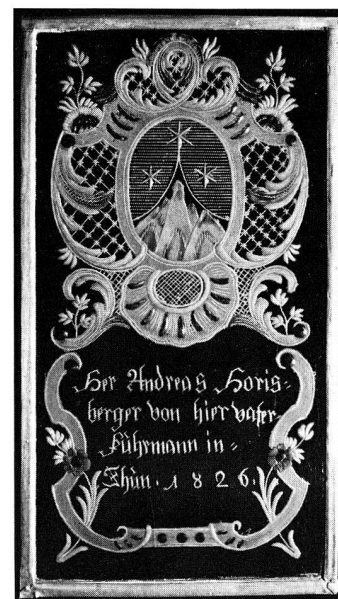 Her Andreas Horis-
berger von hier vater
Fůhrmann in-
Thůn. 1826.